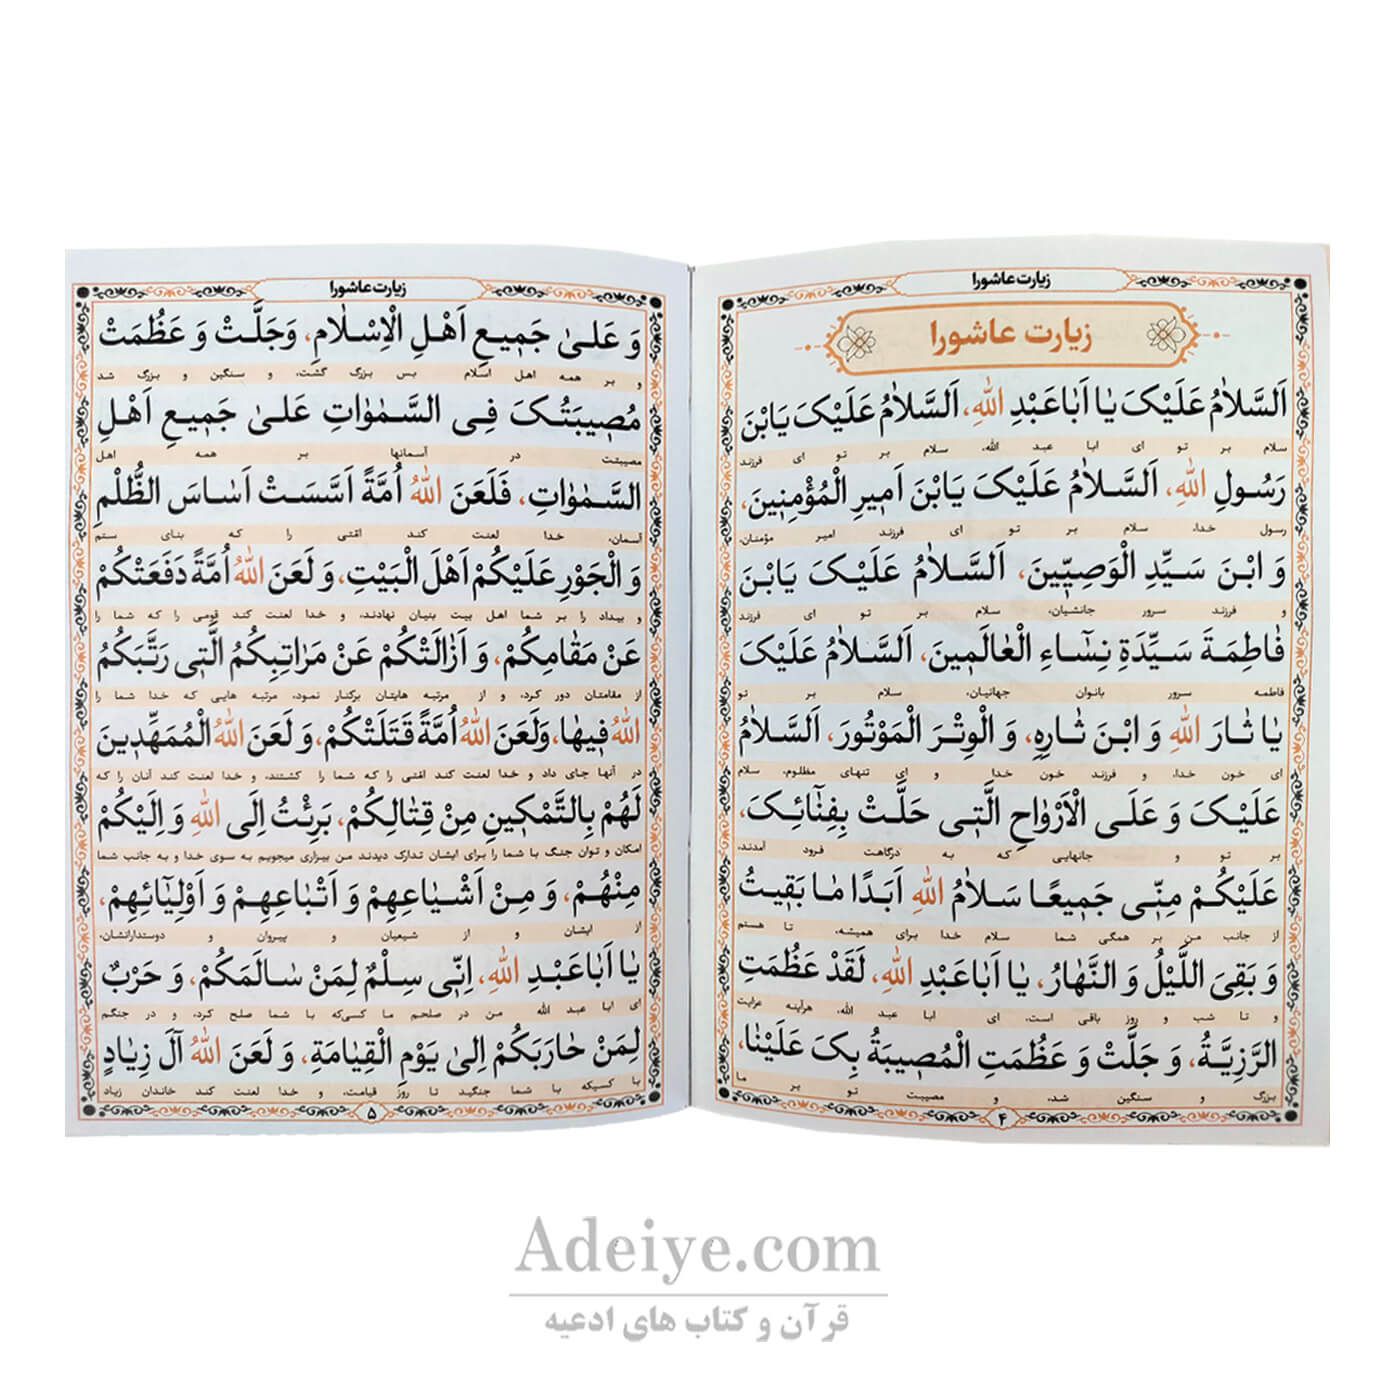 زیارت عاشورا
زیارت عاشورا
اَلسَّلٰامُ عَلَیْکَ یٰا اَبٰاعَبْدِ اللّٰهِ، اَلسَّلٰامُ عَلَیْکَ یَابْنَ
سلام بر تو ای ابا عبد الله، سلام بر تو ای فرزند
رَسُولِ اللّٰهِ، اَلسَّلٰامُ عَلَیْکَ یَابْنَ اَمیرِ الْمُؤْمِنینَ،
رسول خدا، سلام بر تو ای فرزند امیر مؤمنان،
وَ ابْنَ سَیِّدِ الْوَصِیّینَ، اَلسَّلٰامُ عَلَیْکَ یَابْنَ
و فرزند سرور جانشیان، سلام بر تو ای فرزند
فٰاطِمَةَ سَیِّدَةِ نِسٰاءِ الْعٰالَمینَ، اَلسَّلٰامُ عَلَیْکَ
فاطمه سرور بانوان جهانیان، سلام بر تو
یٰا ثٰارَ اللّٰهِ وَ ابْنَ ثٰارِهِ، وَ الْوِتْرَ الْمَوْتُورَ، اَلسَّلٰامُ
ای خون خدا، و فرزند خون خدا و ای تنهای مظلوم، سلام
عَلَیْکَ وَ عَلَی الْاَرْوٰاحِ الَّتی حَلَّتْ بِفِنٰائِکَ،
بر تو و جانهایی که به درگاهت فرود آمدند،
عَلَیْکُمْ مِنّی جَمیعًا سَلٰامُ اللّٰهِ اَبَدًا مٰا بَقیتُ
از جانب من بر همگی شما سلام خدا برای همیشه، تا هستم
وَ بَقِیَ اللَّیْلُ وَ النَّهٰارُ، یٰا اَبٰاعَبْدِ اللّٰهِ، لَقَدْ عَظُمَتِ
و تا شب و روز باقی است، ای ابا عبد الله، هرآینه عزایت
الرَّزِیَّةُ، وَ جَلَّتْ وَ عَظُمَتِ الْمُصیبَةُ بِکَ عَلَیْنٰا،
بزرگ و سنگین شد، و مصیبت تو بر ما
۴
زیارت عاشورا
وَ عَلیٰ جَمیعِ اَهْلِ الْاِسْلٰامِ، وَجَلَّتْ وَ عَظُمَتْ
و بر همه اهل اسلام بس بزرگ گشت، و سنگین و بزرگ شد
مُصیبَتُکَ فِی السَّمٰوٰاتِ عَلیٰ جَمیعِ اَهْلِ
مصیبتت در آسمانها بر همه اهل
السَّمٰوٰاتِ، فَلَعَنَ اللّٰهُ اُمَّةً اَسَّسَتْ اَسٰاسَ الظُّلْمِ
آسمان، خدا لعنت کند امّتی را که بنای ستم
وَ الْجَوْرِ عَلَیْکُمْ اَهْلَ الْبَیْتِ، وَ لَعَنَ اللّٰهُ اُمَّةً دَفَعَتْکُمْ
و بیداد را بر شما اهل بیت بنیان نهادند، و خدا لعنت کند قومی را که شما را
عَنْ مَقٰامِکُمْ، وَ اَزٰالَتْکُمْ عَنْ مَرٰاتِبِکُمُ الَّتی رَتَّبَکُمُ
از مقامتان دور کرد، و از مرتبه هایتان برکنار نمود، مرتبه هایی که خدا شما را
اللّٰهُ فیهٰا، وَلَعَنَ اللّٰهُ اُمَّةً قَتَلَتْکُمْ، وَ لَعَنَ اللّٰهُ الْمُمَهِّدینَ
در آنها جای داد و خدا لعنت کند امّتی را که شما را کشتند، و خدا لعنت کند آنان را که
لَهُمْ بِالتَّمْکینِ مِنْ قِتٰالِکُمْ، بَرِئْتُ اِلَی اللّٰهِ وَ اِلَیْکُمْ
امکان و توان جنگ با شما را برای ایشان تدارک دیدند من بیزاری میجویم به سوی خدا و به جانب شما
مِنْهُمْ، وَ مِنْ اَشْیٰاعِهِمْ وَ اَتْبٰاعِهِمْ وَ اَوْلِیٰائِهِمْ،
از ایشان و از شیعیان و پیروان و دوستدارانشان،
یٰا اَبٰاعَبْدِ اللّٰهِ، اِنّی سِلْمٌ لِمَنْ سٰالَمَکُمْ، وَ حَرْبٌ
ای ابا عبد الله من در صلحم ما کسیکه با شما صلح کرد، و در جنگم
لِمَنْ حٰارَبَکُمْ اِلیٰ یَوْمِ الْقِیٰامَةِ، وَ لَعَنَ اللّٰهُ آلَ زِیٰادٍ
با کسیکه با شما جنگید تا روز قیامت، و خدا لعنت کند خاندان زیاد
۵
Adeiye.com
قرآن و کتاب های ادعیه